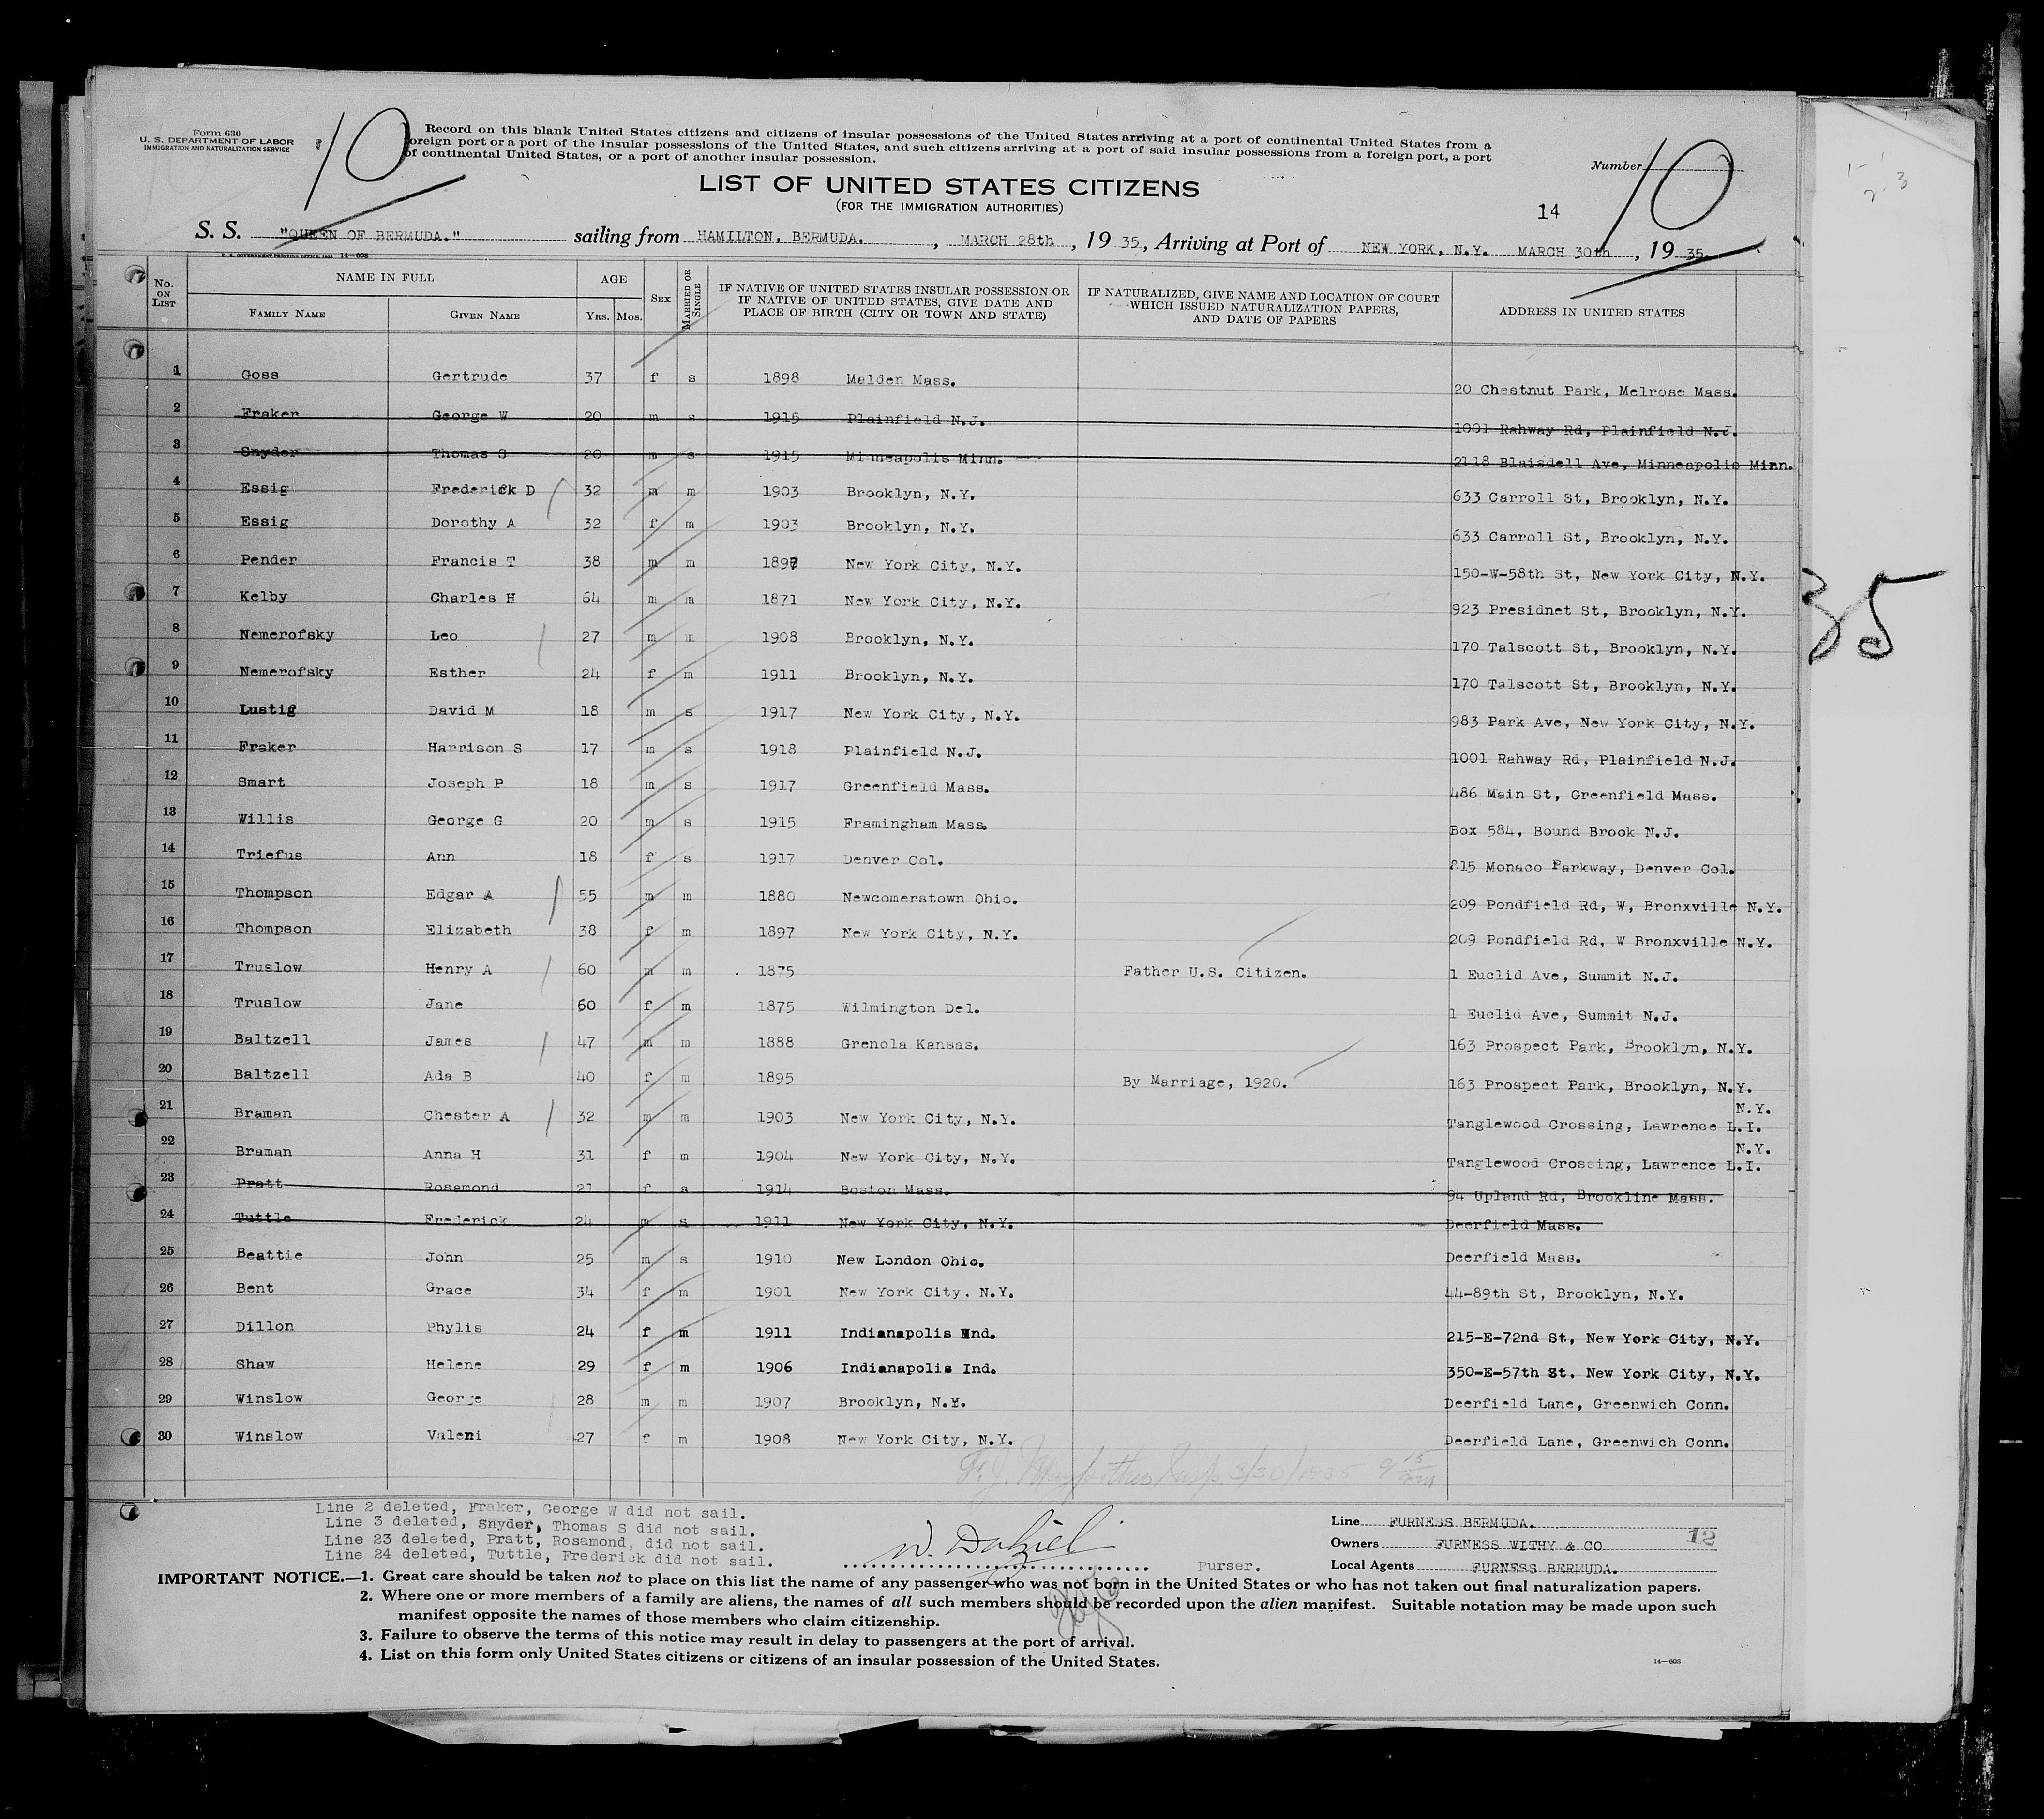 Form 630
U. S. DEPARTMENT OF LABOR
IMMIGRATION AND NATURALIZATION SERVICE
10
Record on this blank United States citizens and citizens of insular possessions of the United States arriving at a port of continental United States from a
foreign port or a port of the insular possessions of the United States, and such citizens arriving at a port of said insular possessions from a foreign port, a port
of continental United States, or a port of another insular possession.
Number 10
LIST OF UNITED STATES CITIZENS
(FOR THE IMMIGRATION AUTHORITIES)
14
S. S. "QUEEN OF BERMUDA." sailing from HAMILTON, BERMUDA. , MARCH 28th , 19 35, Arriving at Port of NEW YORK, N.Y. MARCH 30th , 19 35.
U. S. GOVERNMENT PRINTING OFFICE 14—608
No. ON LIST NAME IN FULL FAMILY NAME GIVEN NAME AGE YRS. MOS. SEX MARRIED OR SINGLE IF NATIVE OF UNITED STATES INSULAR POSSESSION OR IF NATIVE OF UNITED STATES, GIVE DATE AND PLACE OF BIRTH (CITY OR TOWN AND STATE) IF NATURALIZED, GIVE NAME AND LOCATION OF COURT WHICH ISSUED NATURALIZATION PAPERS, AND DATE OF PAPERS ADDRESS IN UNITED STATES
1 Goss Gertrude 37 f s 1898 Malden Mass. 20 Chestnut Park, Melrose Mass.
2 Fraker George W 20 m s 1915 Plainfield N.J. 1001 Rahway Rd, Plainfield N.J.
3 Snyder Thomas S 20 m s 1915 Minneapolis Minn. 2118 Blaisdell Ave, Minneapolis Minn.
4 Essig Frederick D 32 m m 1903 Brooklyn, N.Y. 633 Carroll St, Brooklyn, N.Y.
5 Essig Dorothy A 32 f m 1903 Brooklyn, N.Y. 633 Carroll St, Brooklyn, N.Y.
6 Pender Francis T 38 m m 1897 New York City, N.Y. 150-W-58th St, New York City, N.Y.
7 Kelby Charles H 64 m m 1871 New York City, N.Y. 923 Presidnet St, Brooklyn, N.Y.
8 Nemerofsky Leo 27 m m 1908 Brooklyn, N.Y. 170 Talscott St, Brooklyn, N.Y.
9 Nemerofsky Esther 24 f m 1911 Brooklyn, N.Y. 170 Talscott St, Brooklyn, N.Y.
10 Lustig David M 18 m s 1917 New York City, N.Y. 983 Park Ave, New York City, N.Y.
11 Fraker Harrison S 17 m s 1918 Plainfield N.J. 1001 Rahway Rd, Plainfield N.J.
12 Smart Joseph P 18 m s 1917 Greenfield Mass. 486 Main St, Greenfield Mass.
13 Willis George G 20 m s 1915 Framingham Mass. Box 584, Bound Brook N.J.
14 Triefus Ann 18 f s 1917 Denver Col. 815 Monaco Parkway, Denver Col.
15 Thompson Edgar A 55 m m 1880 Newcomerstown Ohio. 209 Pondfield Rd, W, Bronxville N.Y.
16 Thompson Elizabeth 38 f m 1897 New York City, N.Y. 209 Pondfield Rd, W Bronxville N.Y.
17 Truslow Henry A 60 m m 1875 Father U.S. Citizen. 1 Euclid Ave, Summit N.J.
18 Truslow Jane 60 f m 1875 Wilmington Del. 1 Euclid Ave, Summit N.J.
19 Baltzell James 47 m m 1888 Grenola Kansas. 163 Prospect Park, Brooklyn, N.Y.
20 Baltzell Ada B 40 f m 1895 By Marriage, 1920. 163 Prospect Park, Brooklyn, N.Y.
21 Braman Chester A 32 m m 1903 New York City, N.Y. Tanglewood Crossing, Lawrence L.I. N.Y.
22 Braman Anna H 31 f m 1904 New York City, N.Y. Tanglewood Crossing, Lawrence L.I. N.Y.
23 Pratt Rosamond 21 f s 1914 Boston Mass. 94 Upland Rd, Brookline Mass.
24 Tuttle Frederick 24 m s 1911 New York City, N.Y. Deerfield Mass.
25 Beattie John 25 m s 1910 New London Ohio. Deerfield Mass.
26 Bent Grace 34 f m 1901 New York City, N.Y. 44-89th St, Brooklyn, N.Y.
27 Dillon Phylis 24 f m 1911 Indianapolis Ind. 215-E-72nd St, New York City, N.Y.
28 Shaw Helene 29 f m 1906 Indianapolis Ind. 350-E-57th St. New York City, N.Y.
29 Winslow George 28 m m 1907 Brooklyn, N.Y. Deerfield Lane, Greenwich Conn.
30 Winslow Valeni 27 f m 1908 New York City, N.Y. Deerfield Lane, Greenwich Conn.
35
3/30/1935
Line 2 deleted, Fraker, George W did not sail.
Line 3 deleted, Snyder, Thomas S did not sail.
Line 23 deleted, Pratt, Rosamond, did not sail.
Line 24 deleted, Tuttle, Frederick did not sail.
Purser.
Line FURNESS BERMUDA.
Owners FURNESS WITHY & CO
12
Local Agents FURNESS BERMUDA.
IMPORTANT NOTICE.—1. Great care should be taken not to place on this list the name of any passenger who was not born in the United States or who has not taken out final naturalization papers.
2. Where one or more members of a family are aliens, the names of all such members should be recorded upon the alien manifest. Suitable notation may be made upon such
manifest opposite the names of those members who claim citizenship.
3. Failure to observe the terms of this notice may result in delay to passengers at the port of arrival.
4. List on this form only United States citizens or citizens of an insular possession of the United States.
14—608